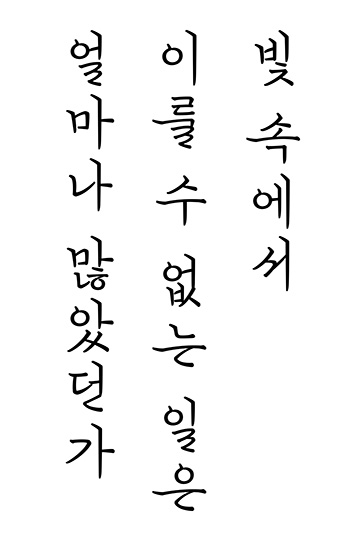 빛 속에서
이를 수 없는 일은
얼마나 많았던가